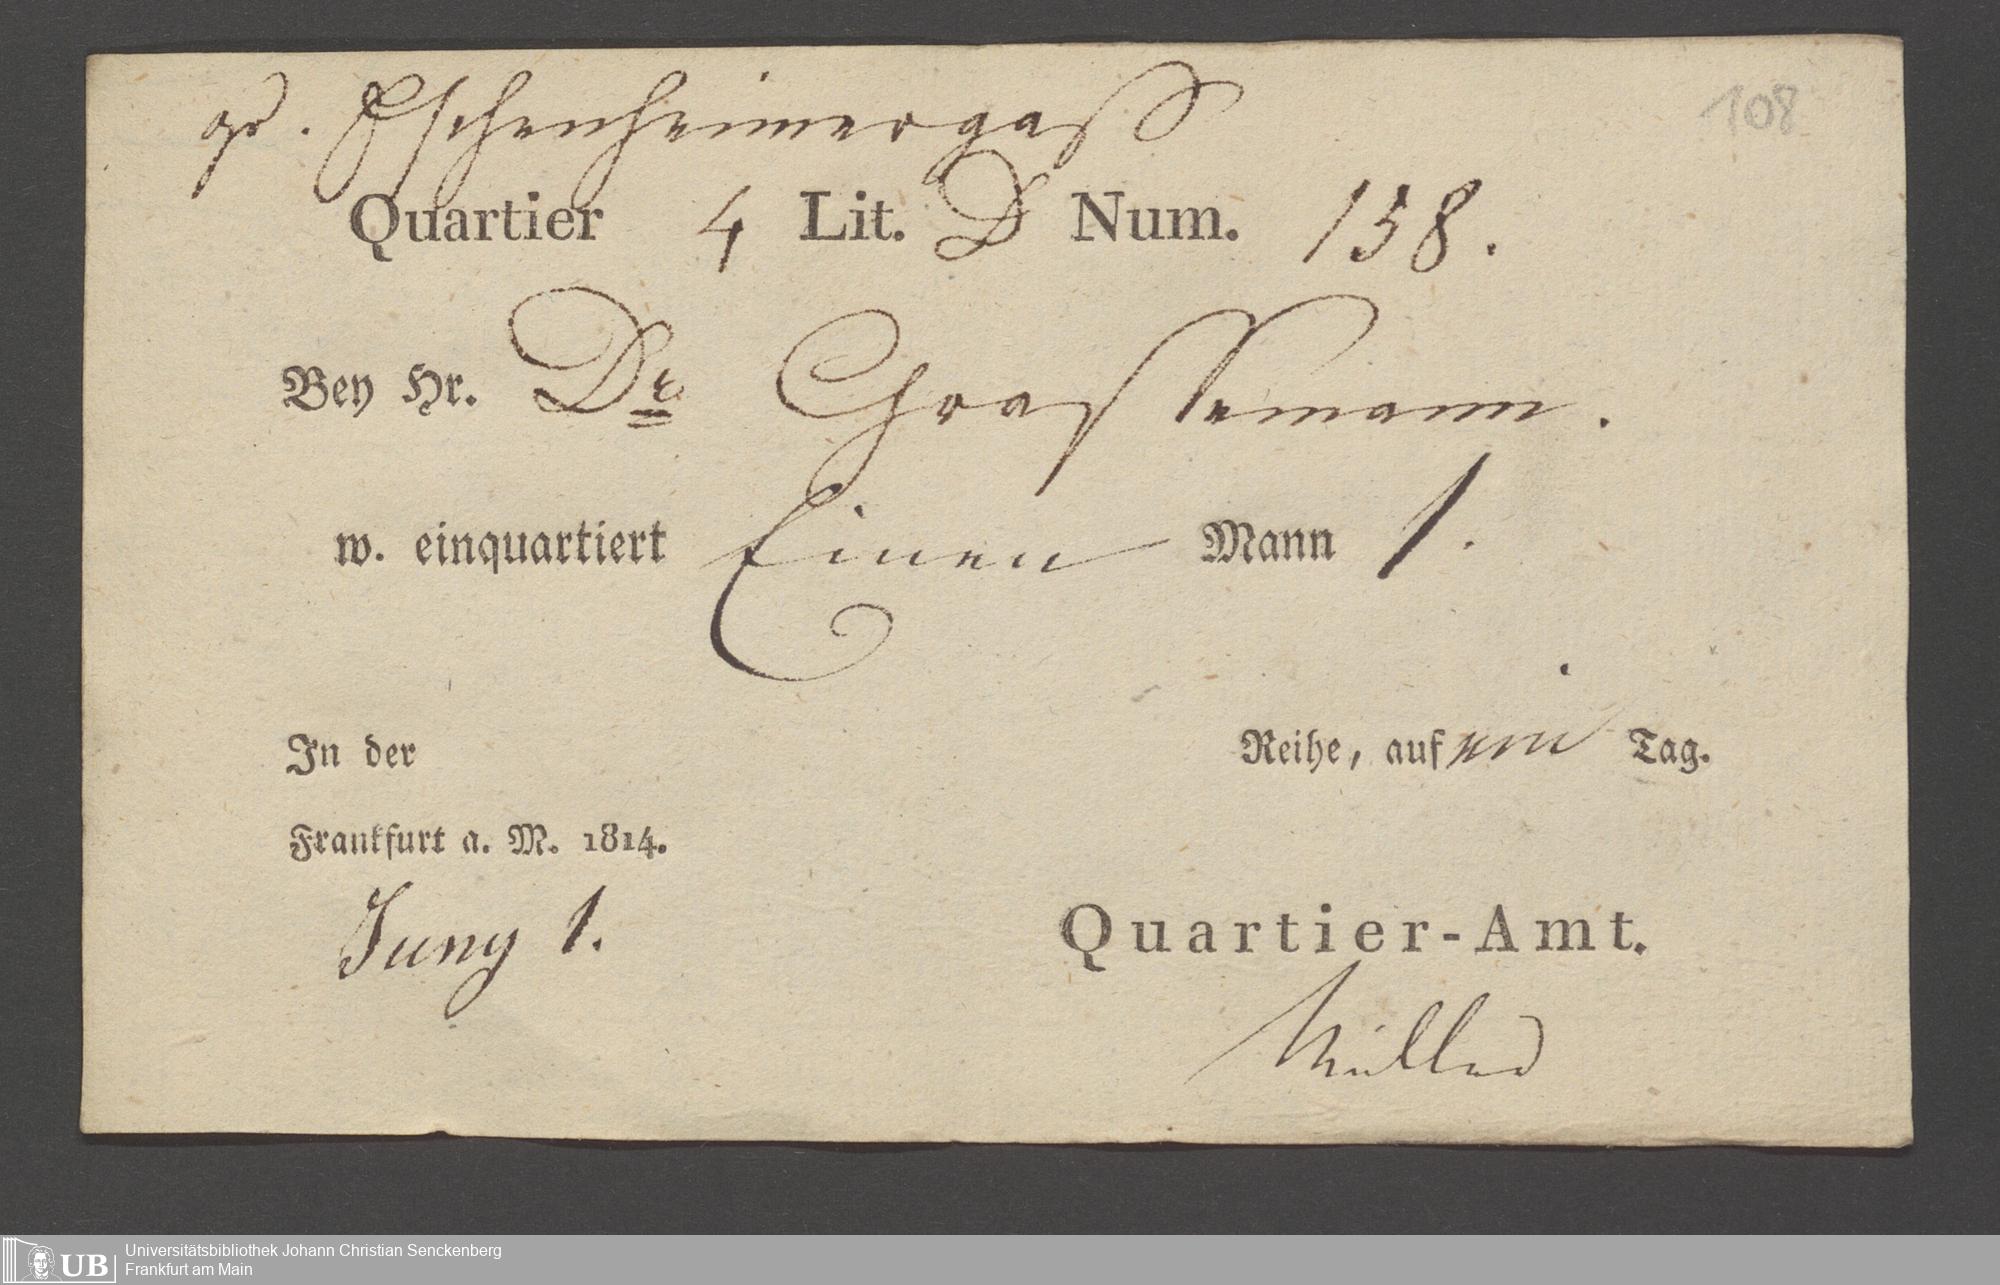 gr. Eschenheimergaß
108
Quartier 4 Lit. D Num. 158.
Bey Hr. Dr Grassemann.
w. einquartiert Einen Mann 1.
In der Reihe, auf ein Tag.
Frankfurt a. M. 1814.
Juny 1.
Quartier-Amt.
Müller
UB
Universitätsbibliothek Johann Christian Senckenberg
Frankfurt am Main